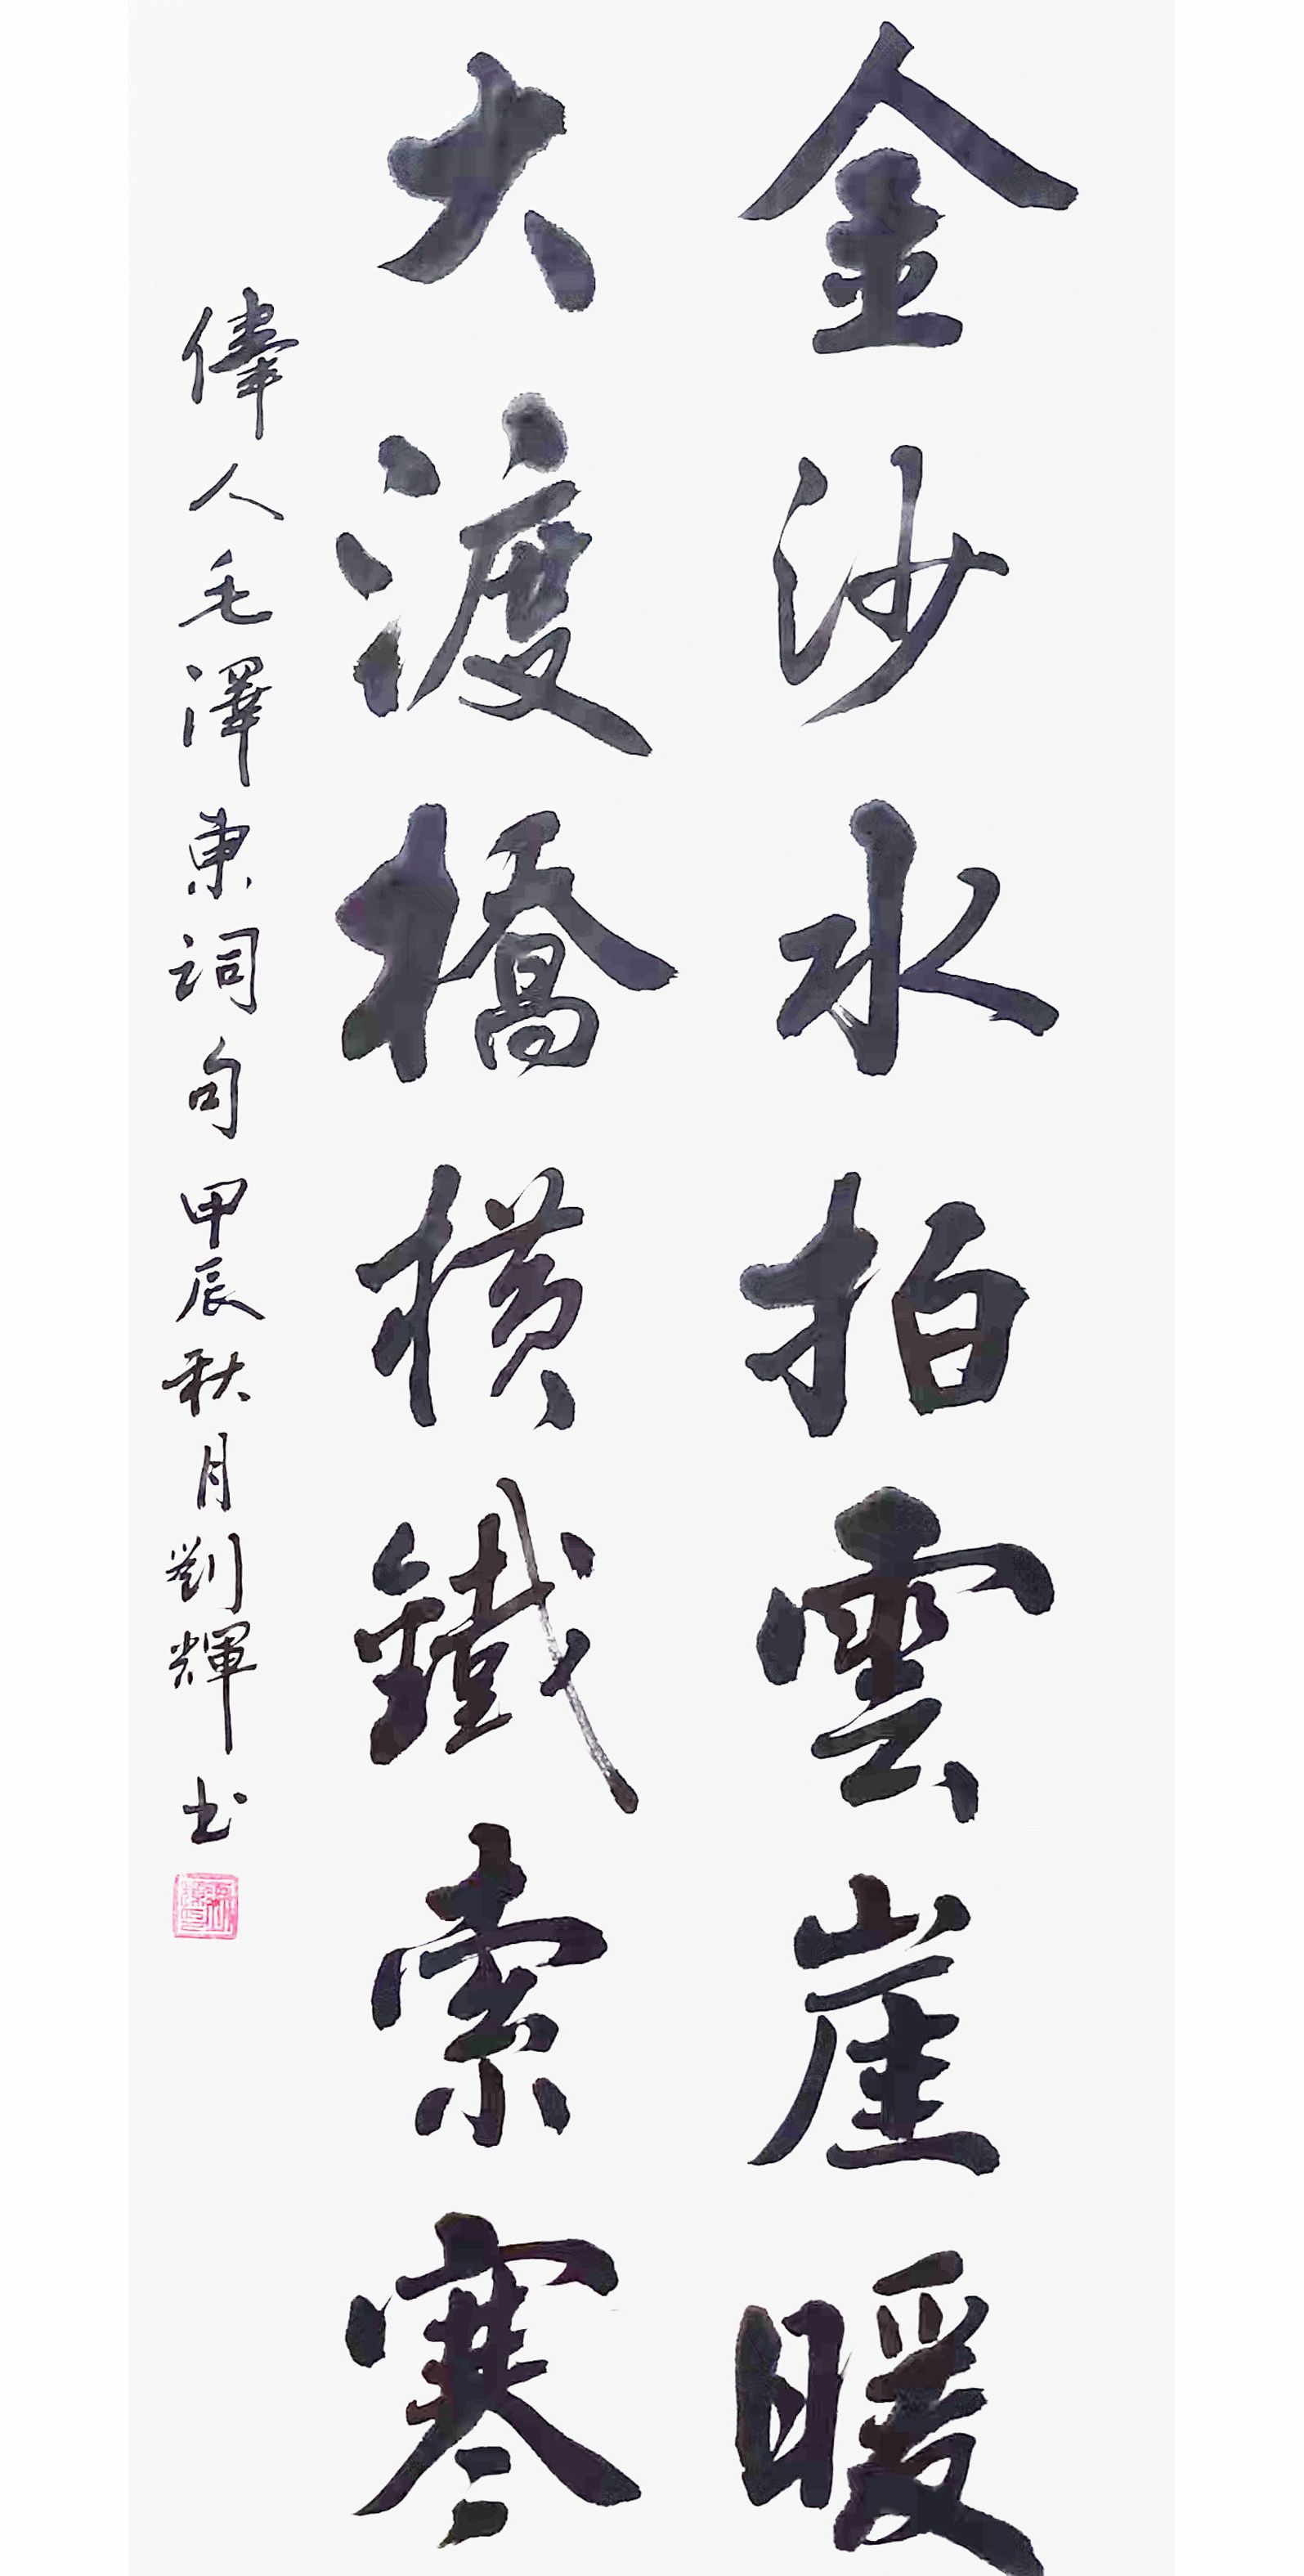 金沙水拍雲崖暖
大渡橋橫鐵索寒
偉人毛澤東詞句甲辰秋月劉輝书